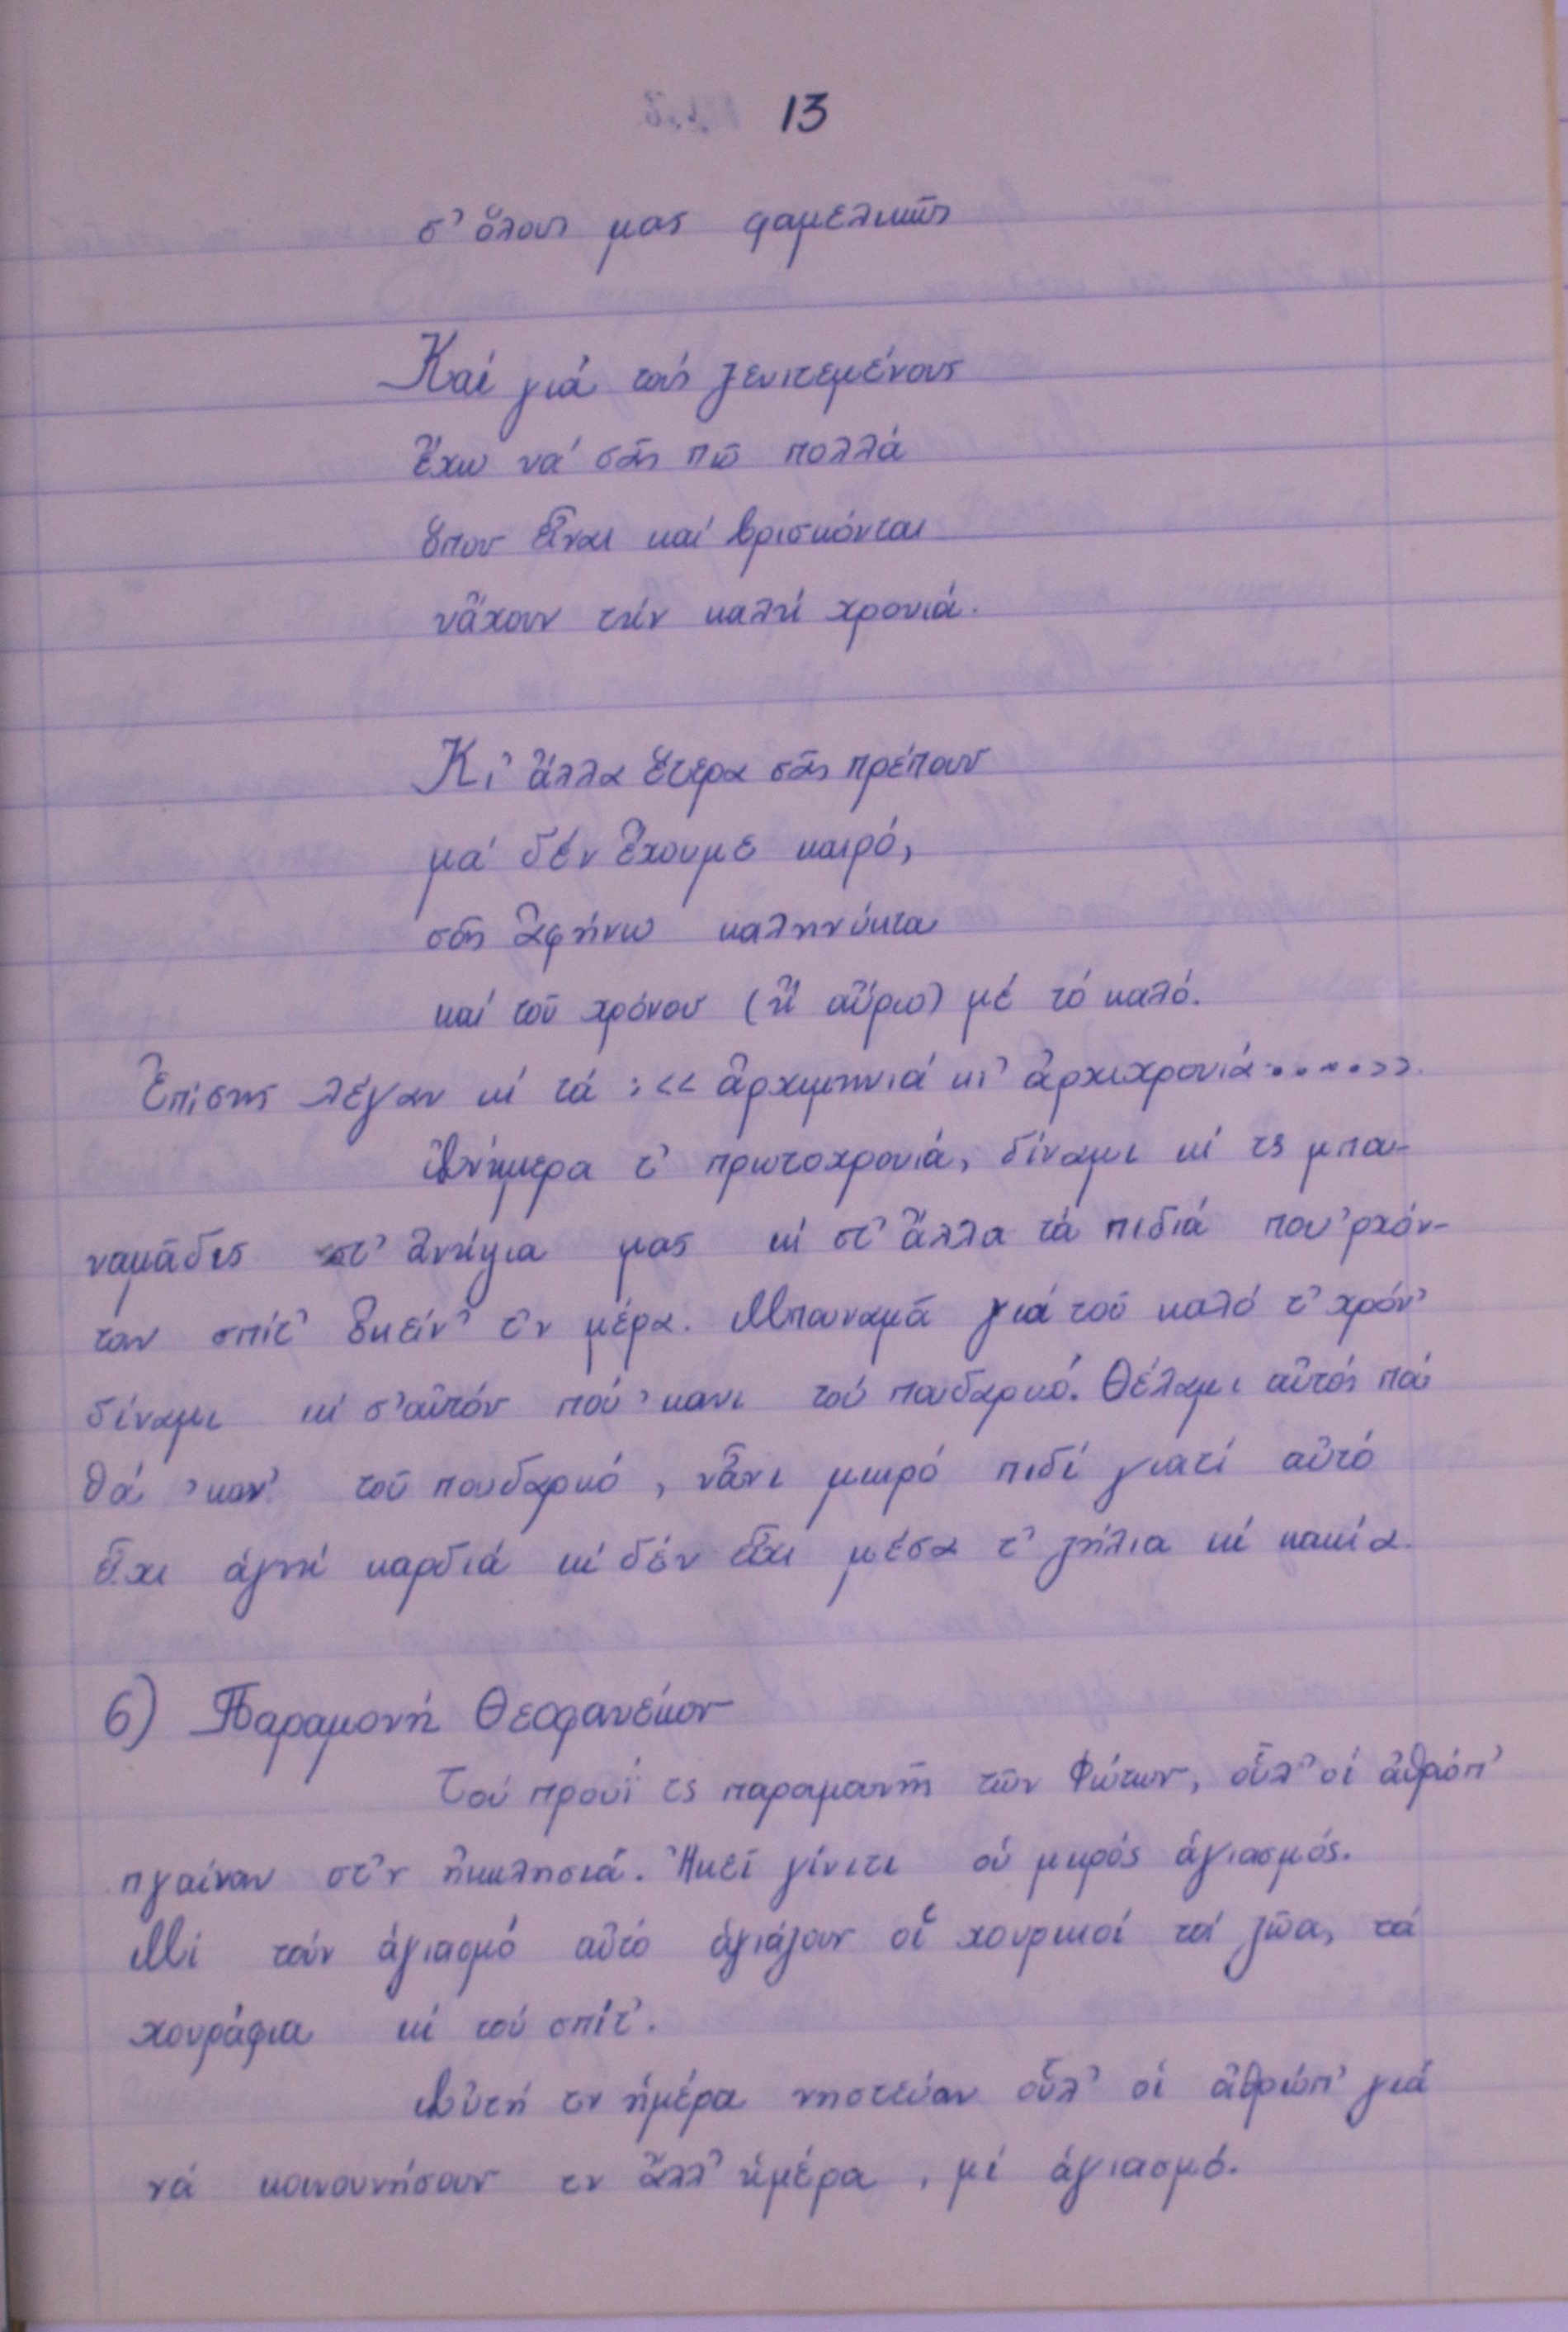 13
σ' ὅλους μας φαμελικῶς
Καί γιά τούς ξενιτεμένους
ἔχω νά σᾶς πῶ πολλά
ὅπου εἶναι καί βρισκόνται
νἄχουν τήν καλή χρονιά.
Κι' ἄλλα ἕτερα σᾶς πρέπουν
μά δέν ἔχουμε καιρό,
σᾶς ἀφήνω καληνύκτα
καί τοῦ χρόνου (ἤ αὔριο) μέ τό καλό.
Ἐπίσης λέγαν κί τά : << ἀρχιμηνιά κι' ἀρχιχρονιά......>>
Ἀνήμερα τ' πρωτοχρονιά, δίναμι κί τς μπου-
ναμᾶδις στ' ἀνήψια μας κί στ' ἄλλα τά πιδιά πού 'ρχόν-
ταν σπίτ' ἐκείν' τ'ν μέρα. Μπουναμᾶ γιά τοῦ καλό τ' χρόν'
δίναμι κί σ' αὐτόν πού 'κανι τού πουδαρκό. Θέλαμι αὐτός πού
θά 'καν' τοῦ πουδαρκό, νἆνι μικρό πιδί γιατί αὐτό
εἶχι ἁγνή καρδιά κί δέν εἶχι μέσα τ' ζήλια κί κακία.
6) Παραμονή Θεοφανείων
Τού προυΐ τς παραμουνῆς τῶν Φώτων, οὗλ' οἱ ἀθρώπ'
πγαίναν στ'ν ἠκκλησιά. Ἠκεῖ γίνιτι οὑ μικρός ἁγιασμός.
Μί τούν ἁγιασμό αὐτό ἁγιάζουν οἱ χουρικοί τά ζῶα, τά
χουράφια κί τού σπίτ'.
Αὐτή τν ἡμέρα νηστεύαν οὗλ' οἱ ἀθρώπ' γιά
νά κοινουνήσουν τν ἄλλ' ἡμέρα, μί ἁγιασμό.